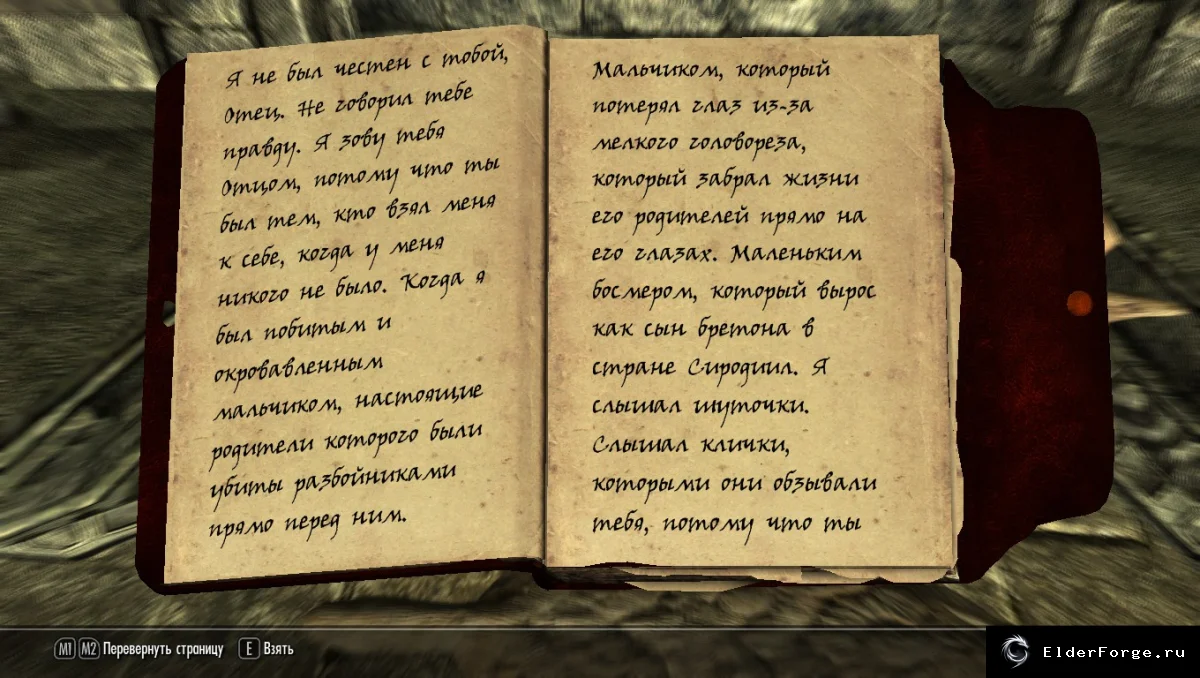 Я не был честен с тобой,
Отец. Не говорил тебе
правду. Я зову тебя
Отцом, потому что ты
был тем, кто взял меня
к себе, когда у меня
никого не было. Когда я
был побитым и
окровавленным
мальчиком, настоящие
родители которого были
убиты разбойниками
прямо перед ним.
Мальчиком, который
потерял глаз из-за
мелкого головореза,
который забрал жизни
его родителей прямо на
его глазах. Маленьким
босмером, который вырос
как сын бретона в
стране Сиродиил. Я
слышал шуточки.
Слышал клички,
которыми они обзывали
тебя, потому что ты
M1 M2 Перевернуть страницу E Взять
ElderForge.ru